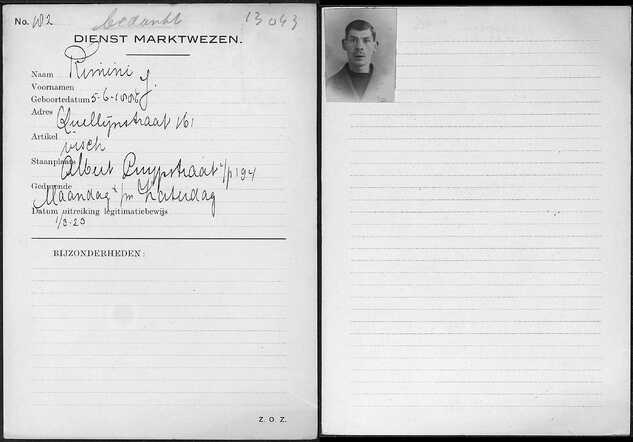 No. 102 bedankt 13043
DIENST MARKTWEZEN.
Naam Rimini
Voornamen J.
Geboortedatum 5-6-
Adres Quellijnstraat 161
Artikel visch
Staanplaats Albert Cuypstraat 194
Gedurende Maandag t/m Zaterdag
Datum uitreiking legitimatiebewijs
BIJZONDERHEDEN:
Z. O. Z.